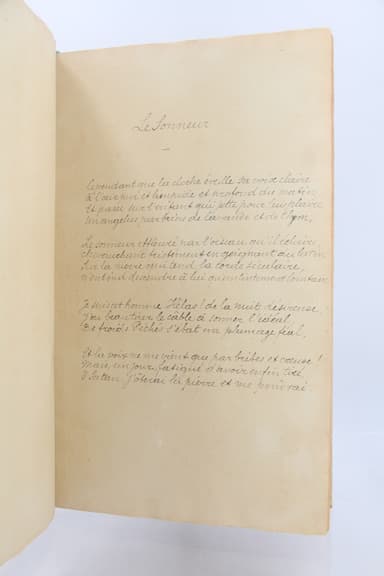 Le Sonneur
Cependant que la cloche éveille sa voix claire
à l'air pur et limpide et profond du matin
Et passe sur l'enfant qui jette pour lui plaire
un angelus par brins de lavande et de thym,
Le sonneur effleuré par l'oiseau qu'il éclaire,
chevauchant tristement en geignant du latin
Sur la pierre qui tend la corde séculaire,
n'entend descendre à lui qu'un tintement lointain.
Je suis cet homme. Hélas! de la nuit désireuse
J'ai beau tirer le câble à sonner l'idéal
De froids Péchés s'ébat un plumage féal,
Et la voix ne me vient que par bribes et creuse!
Mais, un jour, fatigué d'avoir enfin tiré,
O Satan, j'ôterai la pierre et me pendrai.